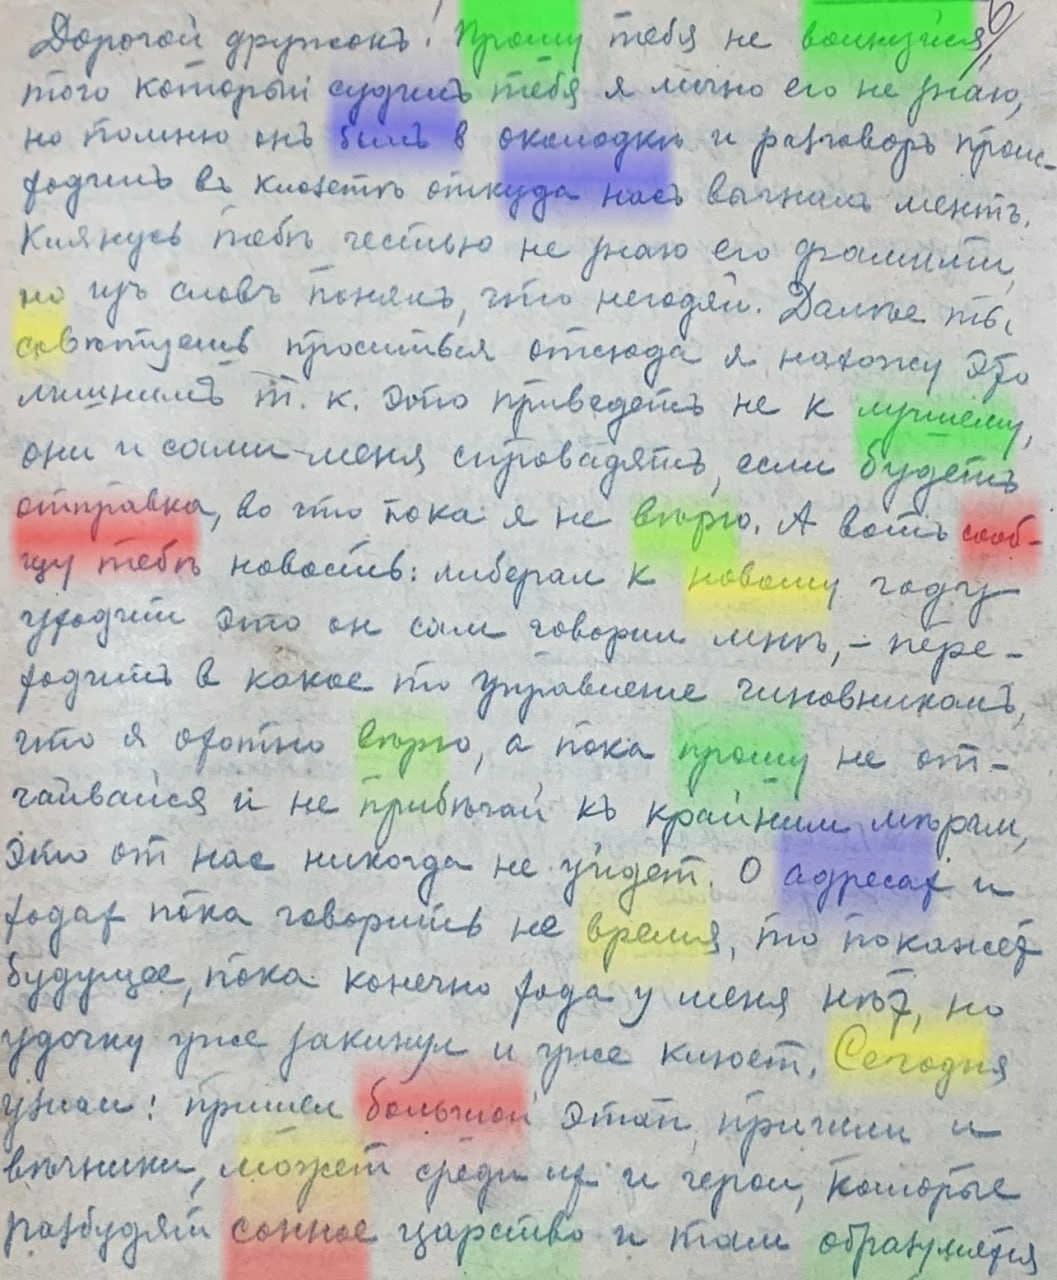 Дорогой дружокъ! Прошу тебя не волнуйся,
того который судилъ тебя я лично его не знаю,
но помню онъ былъ в околодкѣ и разговоръ проис-
ходилъ въ клозетѣ откуда насъ выгналъ ментъ.
Клянусь тебѣ честью не знаю его фамилии,
но изъ словъ понялъ, что негодяй. Далѣе ты
совѣтуешь проситься отсюда я нахожу это
лишнимъ т. к. это приведетъ не к лучшему,
они и сами меня спровадятъ, если будетъ
отправка, во что пока я не вѣрю. А вотъ сооб-
щу тебѣ новость: либерал к новому году
уходит это он сам говорил мнѣ, - пере-
ходитъ в какое то управление чиновникомъ,
что я охотно вѣрю, а пока прошу не от-
чаивайся и не прибѣгай къ крайним мѣрам,
это от нас никогда не уйдет. О адресах и
ходах пока говорить не время, то покажет
будущее, пока конечно хода у меня нѣт, но
удочку уже закинул и уже клюет. Сегодня
узнал: пришел большой этап, пришли и
вѣчники, может среди их и герои, которые
разбудят сонное царство и там образумятся